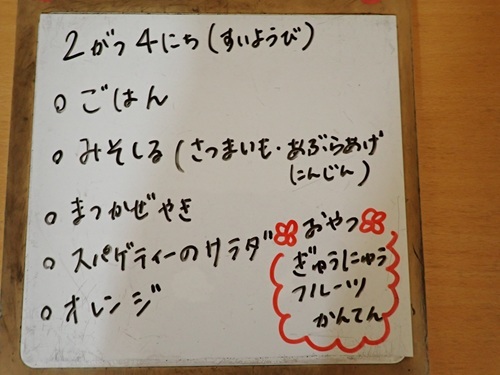 2がつ4にち(すいようび)
○ ごはん
○ みそしる(さつまいも・あぶらあげ
にんじん)
○ まつかぜやき
○ スパゲティーのサラダ
○ オレンジ
おやつ
ぎゅうにゅう
フルーツ
かんてん